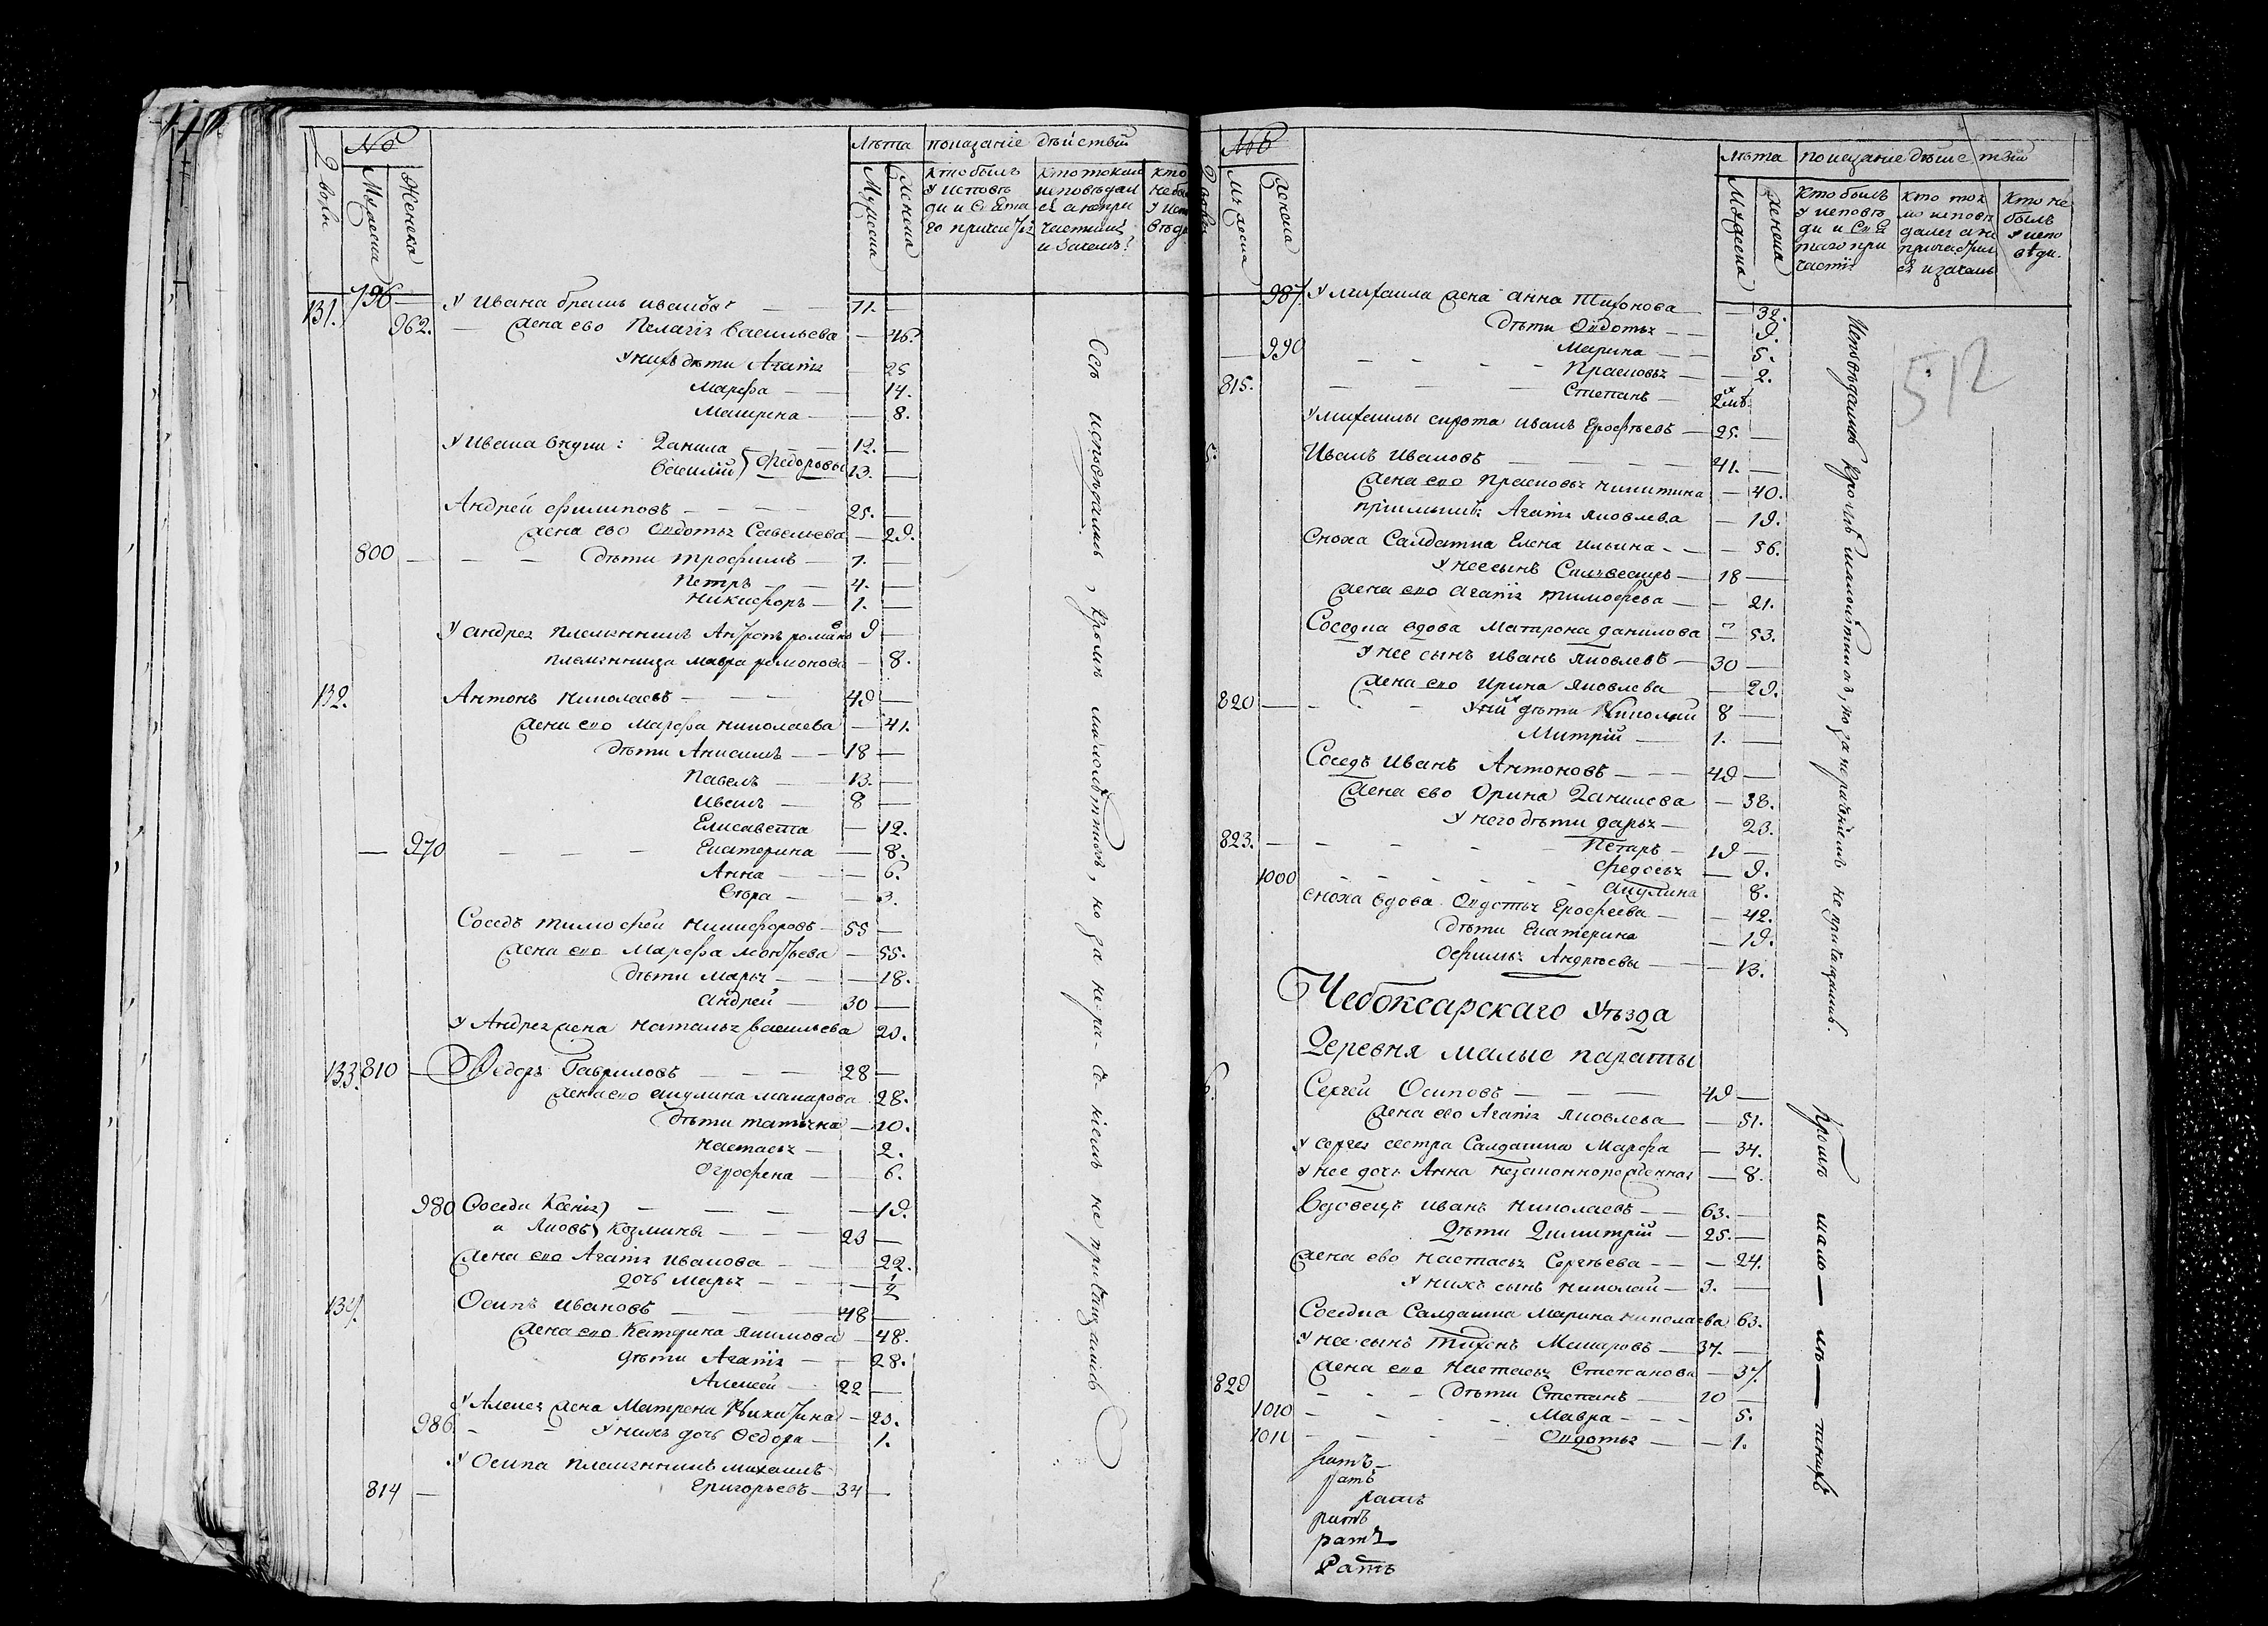 №
Лѣта показаніе дѣйствій
Дворы
Мужеска
Женска
Мужеска
Женска
кто былъ
у исповѣ
ди и Свѣта
го причас
кто токмо
исповѣдал
ся а непри
частился
и зачемъ?
кто
не бы
у исп
вѣди
131. 796 — У Ивана братъ Ивановъ — 71. —
962. — Жена ево Пелагія Васильева — 46.
У нихъ дѣти Агапія — 25
Марѳа — 14.
Матрена — 8.
У Ивана внуки: Данила — 12. —
Василій } Федоровы 13. —
Андрей Филиповъ — 25. —
Жена ево Овдотья Савельева — 29.
800 — дѣти Трофимъ — 7. —
Петръ — 4. —
Никифоръ — 1. —
У Андрея племянникъ Антропъ Романовъ 9 —
племянница Мавра Романова — 8.
132. Антонъ Николаевъ — 49 —
Жена ево Марѳа Николаева — 41.
дѣти Анисимъ — 18 —
Павелъ — 13. —
Иванъ — 8 —
Елисавета — 12.
— 970 — Екатерина — 8.
Анна — 6.
Вѣра — 3.
Соседъ Тимофей Никифоровъ — 55 —
Жена ево Марѳа Леонтьева — 55.
дѣти Марья — 18.
Андрей — 30 —
У Андрея жена Наталья Васильева 20.
133. 810 — Федоръ Гавриловъ — 28 —
Жена ево Акулина Макарова 28.
дѣти Татьяна — 10.
Настасья — 2.
Огрофена — 6.
980 Соседи Ксенія — 19.
и Яковъ } Козмины — 23 —
Жена ево Агапія Иванова — 22.
дочь Марья — ½
134. Осипъ Ивановъ — 48 —
Жена ево Катерина Якимова — 48.
дѣти Агапія — 28.
Алексей — 22 —
У Алексея жена Матрена Никитина — 20.
986. — У нихъ дочь Федора — 1.
У Осипа племянникъ Михаилъ
814 — Григорьевъ — 34 —
Всѣ исповѣдались, кромѣ малолѣтнихъ, но за нераченіемъ не причащались
№
Дворы
Мужеска
Женска
лѣта показаніе дѣйствій
Мужеска
Женска
Кто былъ
у исповѣ
ди и Свя
таго при
частія
кто ток
мо исповѣ
дался а не
причастил
ся и зачемъ
Кто не
былъ
у испо
вѣди.
512
987. У Михаила жена Анна Тихонова — 32.
дѣти Овдотья — 9.
— 990 Марина — 5.
Прасковья — 2.
815. — Степанъ — 2хмѣ
У Михаилы сирота Иванъ Ерофѣевъ — 25. —
Иванъ Ивановъ — 41. —
Жена ево Прасковья Никитина — 40.
Агапія Яковлева — 19.
Сноха Салдатка Елена Ильина — 56.
У нее сынъ Силвестръ — 18 —
Жена ево Агапія Тимофеева — 21.
Соседка вдова Матрона Данилова — 53.
У нее сынъ Иванъ Яковлевъ — 30 —
Жена ево Ирина Яковлева — 29.
820 — У них дѣти Николай 8 —
Митрій — 1. —
Соседъ Иванъ Антоновъ — 49 —
Жена ево Орина Данилова — 38.
У него дѣти Дарья — 23.
823. — Петаръ — 19 —
Федосья — 9.
1000 — Акулина 8.
Сноха вдова Овдотья Ерофеева — 42.
дѣти Екатерина — 19.
Офимья Андрѣевы — 13.
Чебоксарскаго Уѣзда
Деревня Малые Параты
Сергей Осиповъ — 49 —
Жена ево Агапія Яковлева — 51.
У Сергея сестра Салдатка Марѳа — 34.
У нее дочь Анна незаконнорожденная — 8.
Вдовецъ Иванъ Николаевъ — 63. —
Дѣти Димитрій — 25. —
Жена ево Настасья Сергѣева — 24.
У нихъ сынъ Николай — 3. —
Соседка Салдатка Марина Николаева 63.
У нее сынъ Тихонъ Макаровъ — 37. —
Жена ево Настасья Степанова — 37.
829 — дѣти Степанъ — 10 —
1010 — Мавра — 5.
1011 — Овдотья — 1.
Исповѣдались кромѣ малолѣтнихъ, но за нераченіемъ не причащались.
Кромѣ мало — лѣ — тнихъ
ратъ
ратъ
ратъ
ратъ
Ратъ